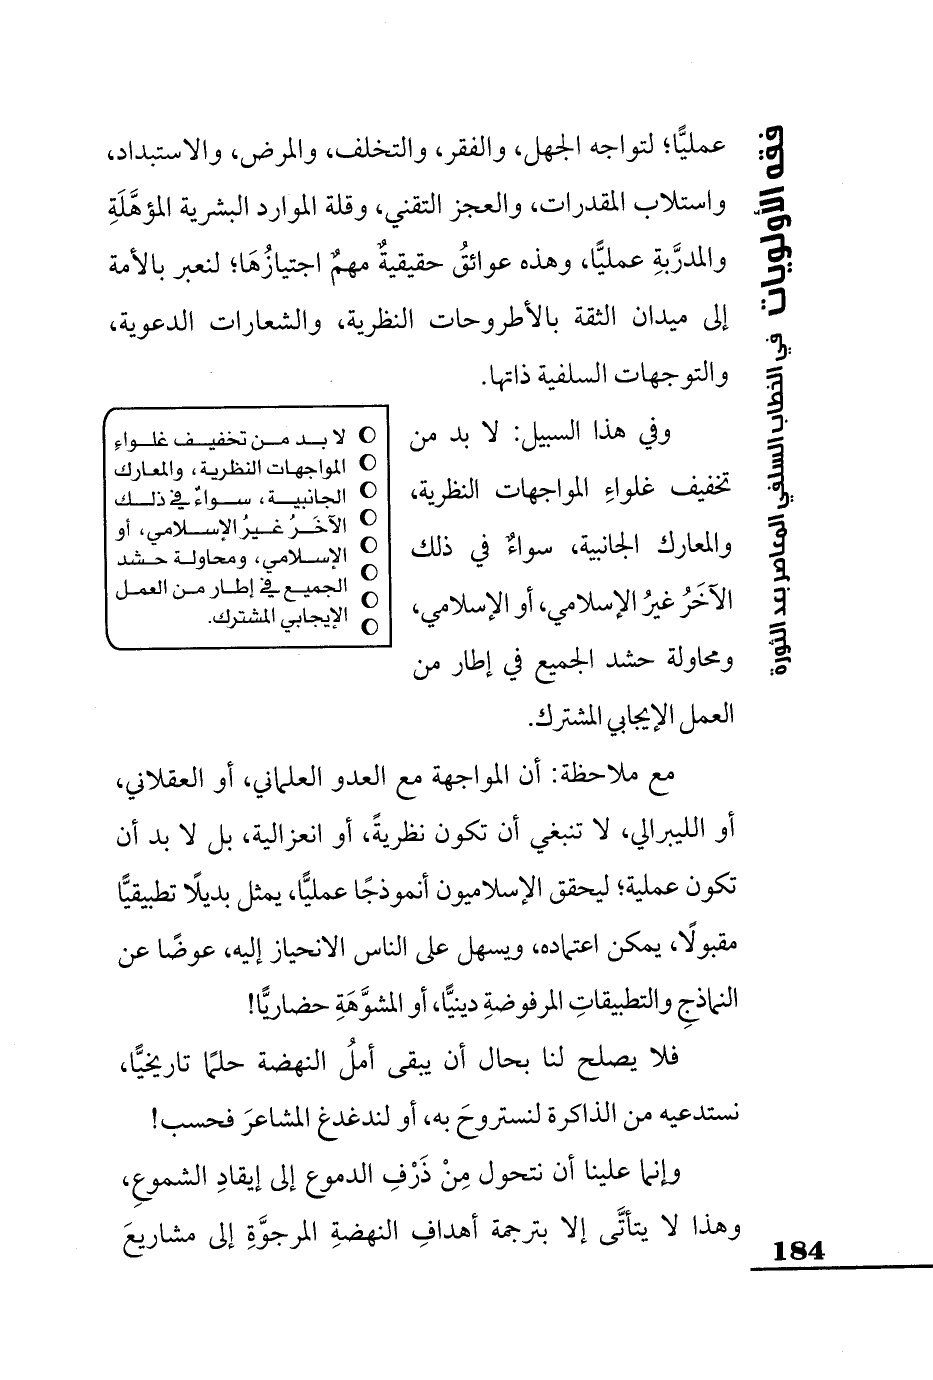 فقه الأولويات في الخطاب السلفي المعاصر بعد الثورة
عمليًّا؛ لتواجه الجهل، والفقر، والتخلف، والمرض، والاستبداد،
واستلاب المقدرات، والعجز التقني، وقلة الموارد البشرية المؤهَّلَةِ
والمدرَّبةِ عمليًّا، وهذه عوائقُ حقيقيةٌ مهمٌ اجتيازُهَا؛ لنعبر بالأمة
إلى ميدان الثقة بالأطروحات النظرية، والشعارات الدعوية،
والتوجهات السلفية ذاتها.
وفي هذا السبيل: لا بد من
تخفيف غلواءِ المواجهات النظرية،
والمعارك الجانبية، سواءٌ في ذلك
الآخَرُ غيرُ الإسلامي، أو الإسلامي،
ومحاولة حشد الجميع في إطار من
العمل الإيجابي المشترك.
لا بد من تخفيف غلواءِ
المواجهات النظرية، والمعارك
الجانبية، سواءٌ في ذلك
الآخَرُ غيرُ الإسلامي، أو
الإسلامي، ومحاولة حشد
الجميع في إطار من العمل
الإيجابي المشترك.
مع ملاحظة: أن المواجهة مع العدو العلماني، أو العقلاني،
أو الليبرالي، لا تنبغي أن تكون نظريةً، أو انعزالية، بل لا بد أن
تكون عملية؛ ليحقق الإسلاميون أنموذجًا عمليًّا، يمثل بديلًا تطبيقيًّا
مقبولًا، يمكن اعتماده، ويسهل على الناس الانحياز إليه، عوضًا عن
النماذجِ والتطبيقاتِ المرفوضةِ دينيًّا، أو المشوَّهَةِ حضاريًّا!
فلا يصلح لنا بحال أن يبقى أملُ النهضة حلمًا تاريخيًّا،
نستدعيه من الذاكرة لنستروحَ به، أو لندغدغ المشاعرَ فحسب!
وإنما علينا أن نتحول مِنْ ذَرْفِ الدموع إلى إيقادِ الشموعِ،
وهذا لا يتأتَّى إلا بترجمة أهدافِ النهضةِ المرجوَّةِ إلى مشاريعَ
184